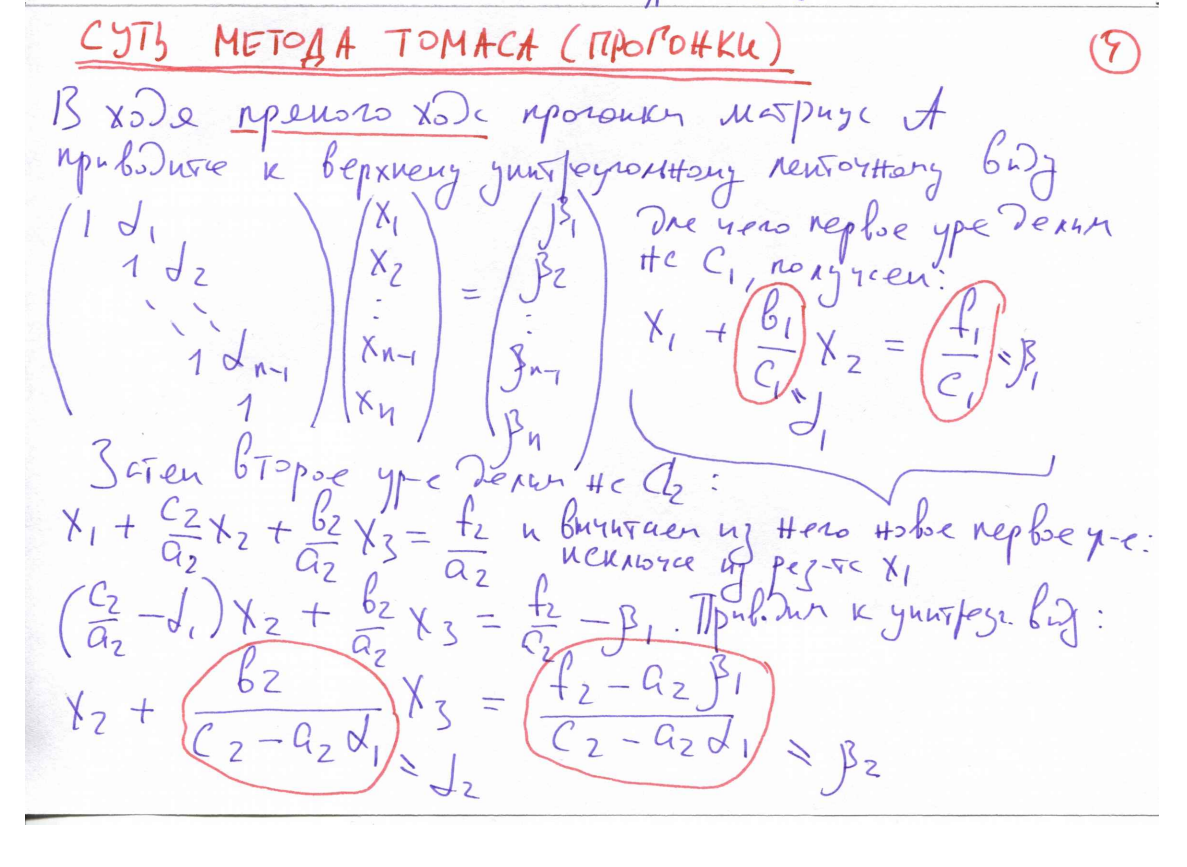 СУТЬ МЕТОДА ТОМАСА (ПРОГОНКИ)
В ходе прямого хода прогонки матрица A
приводится к верхнему унитреугольному ленточному виду
( 1 α₁ ) ( x₁ ) ( β₁ ) Для чего первое ур-е делим
( 1 α₂ ) ( x₂ ) = ( β₂ ) на C₁, получаем:
( ⋱ ⋱ ) ( ⋮ ) ( ⋮ )
( 1 αₙ₋₁ ) ( xₙ₋₁ ) ( βₙ₋₁ ) x₁ + (b₁/c₁) x₂ = (f₁/c₁) = β₁
( 1 ) ( xₙ ) ( βₙ ) = α₁
Затем второе ур-е делим на a₂ :
x₁ + (c₂/a₂) x₂ + (b₂/a₂) x₃ = f₂/a₂ и вычитаем из него новое первое у-е:
исключая из рез-та x₁
(c₂/a₂ − α₁) x₂ + (b₂/a₂) x₃ = f₂/a₂ − β₁. Приводим к унитреуг. виду:
x₂ + (b₂/(c₂ − a₂α₁)) x₃ = (f₂ − a₂β₁)/(c₂ − a₂α₁) = β₂
= α₂